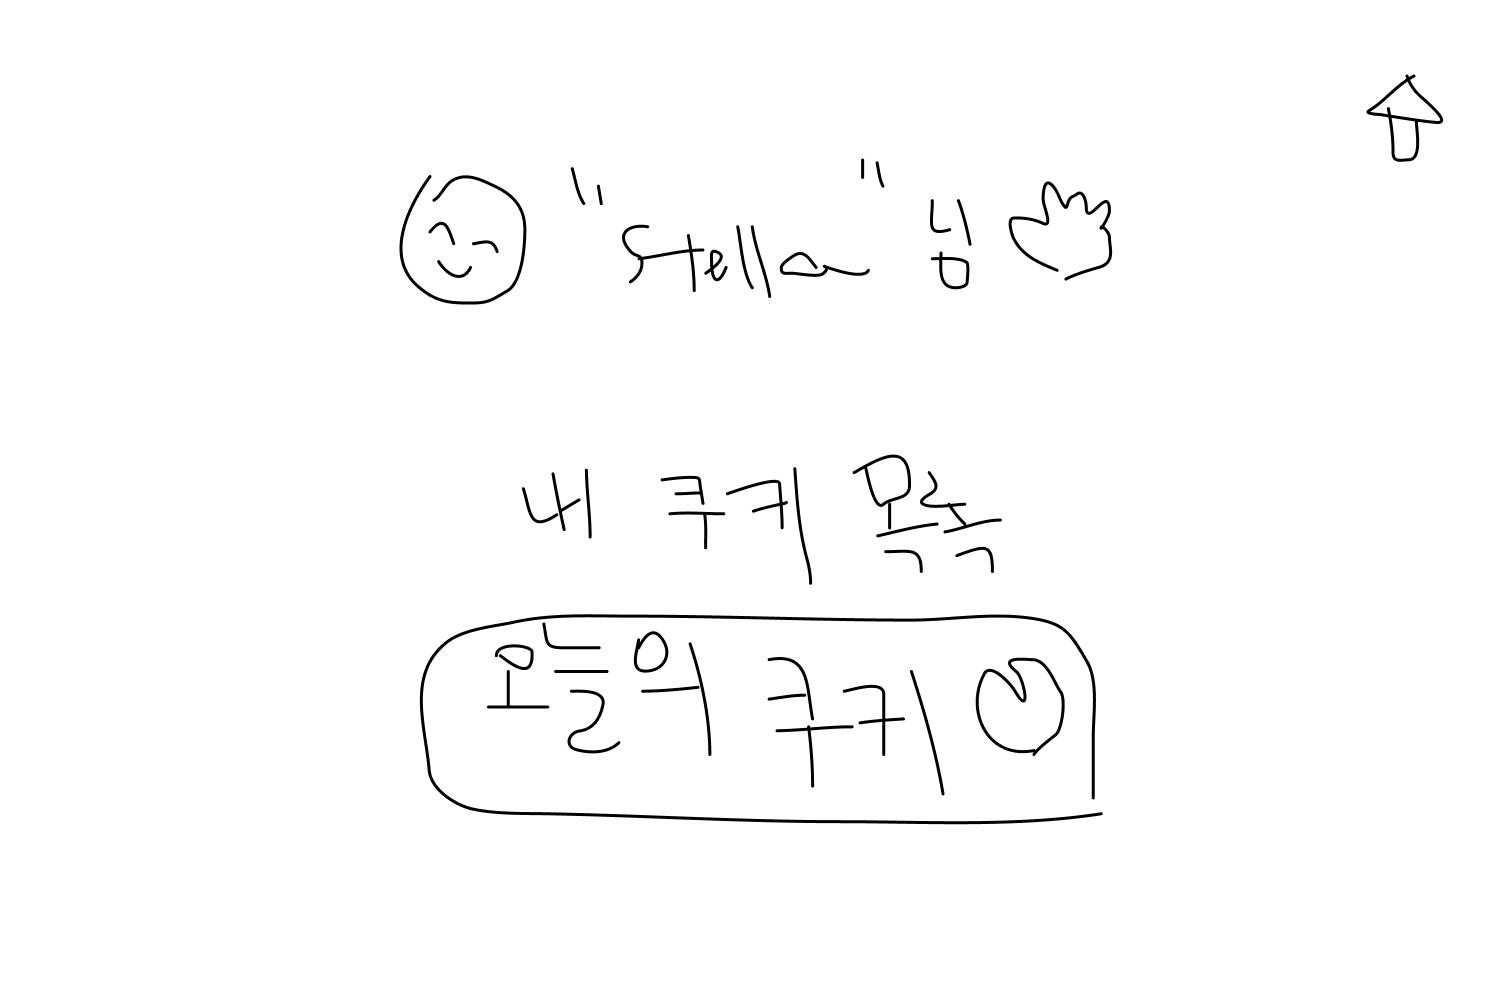 "Stella" 님
내 쿠키 목록
오늘의 쿠키